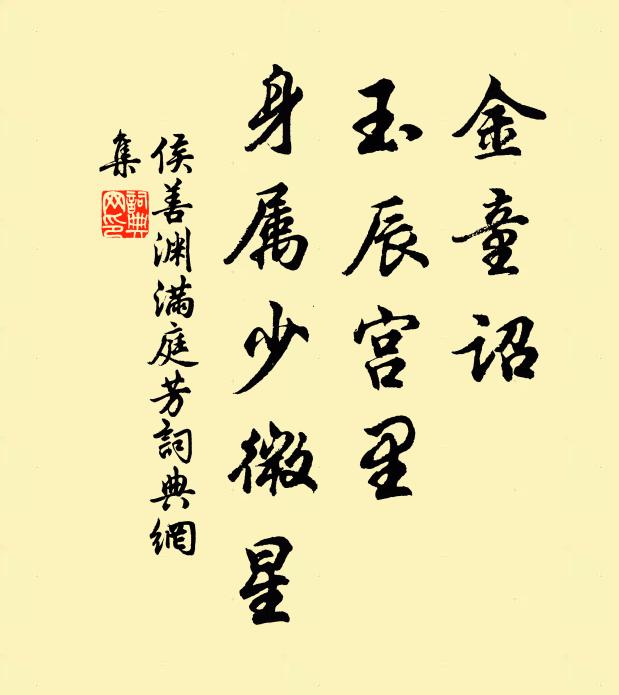 金童诏
玉辰宫里
身属少微星
侯善渊满庭芳词典网
集
词典网印